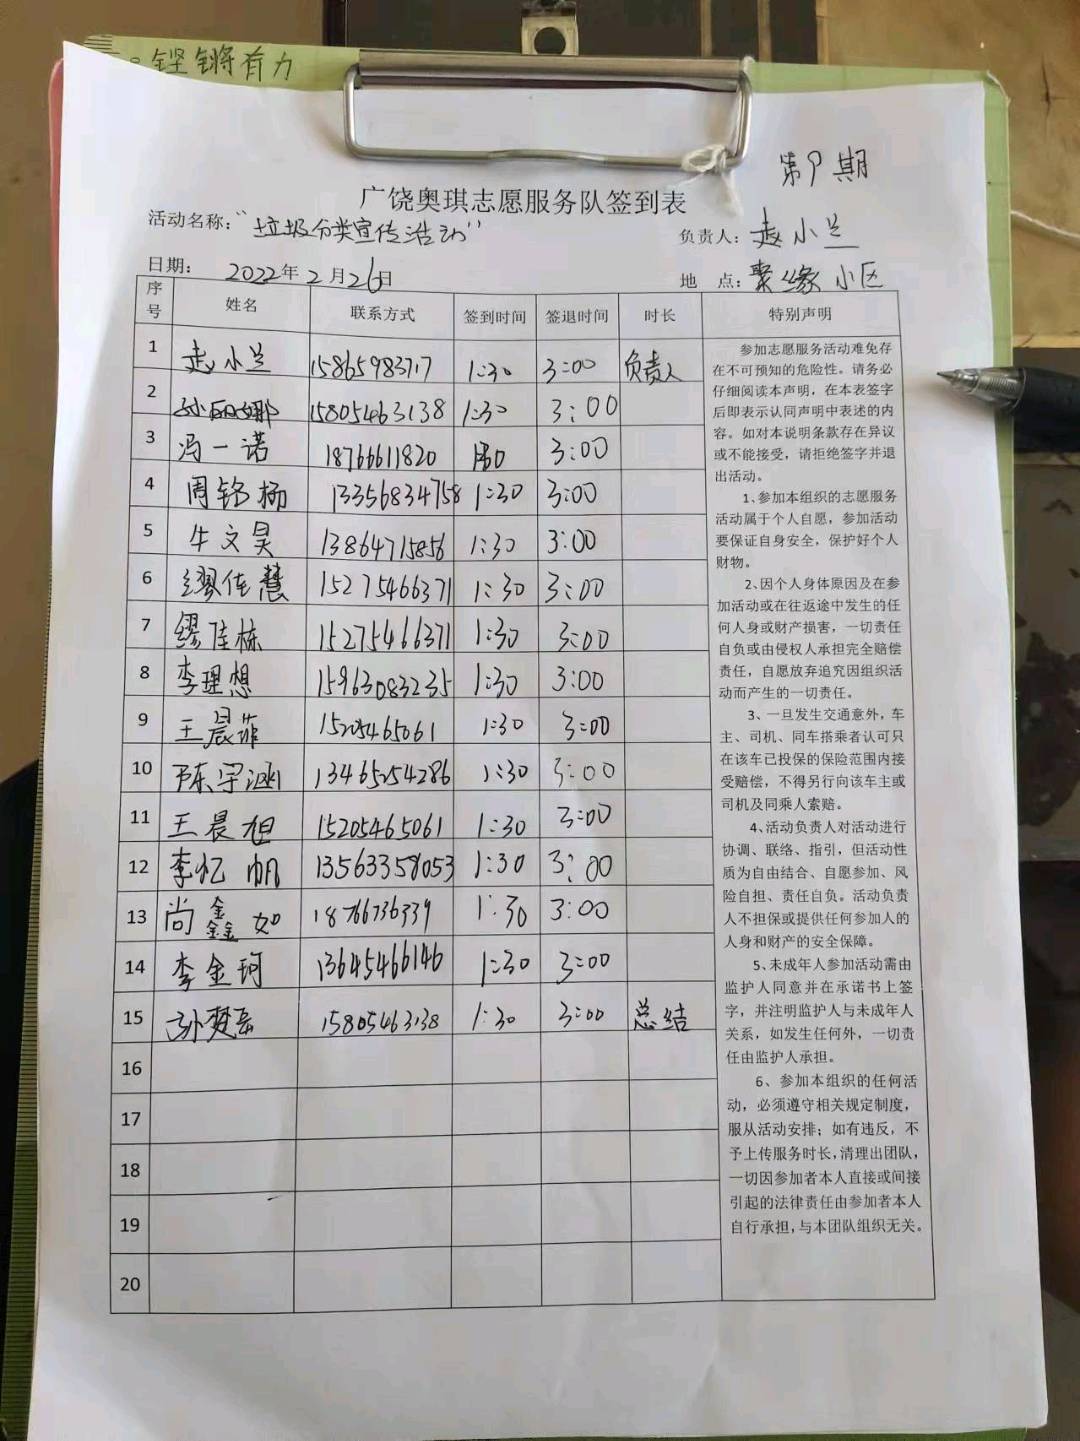 铿锵有力
第9期
广饶奥琪志愿服务队签到表
活动名称：“垃圾分类宣传活动”
负责人：赵小兰
日期： 2022年2月26日
地 点：聚缘小区
序号 姓名 联系方式 签到时间 签退时间 时长 特别声明
1 赵小兰 15865983717 1:30 3:00 负责人
2 孙丽娜 15805463138 1:30 3:00
3 冯一诺 18766611820 1:30 3:00
4 周铭杨 13356834758 1:30 3:00
5 牛文昊 13864715856 1:30 3:00
6 缪佳慧 15275466371 1:30 3:00
7 缪佳栋 15275466371 1:30 3:00
8 李理想 15963083235 1:30 3:00
9 王晨菲 15205465061 1:30 3:00
10 陈宇涵 13465254286 1:30 3:00
11 王晨旭 15205465061 1:30 3:00
12 李忆帆 13563358053 1:30 3:00
13 尚鑫如 18766736339 1:30 3:00
14 李金珂 13645466146 1:30 3:00
15 孙 15805463138 1:30 3:00 总结
16
17
18
19
20
参加志愿服务活动难免存
在不可预知的危险性。请务必
仔细阅读本声明，在本表签字
后即表示认同声明中表述的内
容。如对本说明条款存在异议
或不能接受，请拒绝签字并退
出活动。
1、参加本组织的志愿服务
活动属于个人自愿，参加活动
要保证自身安全，保护好个人
财物。
2、因个人身体原因及在参
加活动或在往返途中发生的任
何人身或财产损害，一切责任
自负或由侵权人承担完全赔偿
责任，自愿放弃追究因组织活
动而产生的一切责任。
3、一旦发生交通意外，车
主、司机、同车搭乘者认可只
在该车已投保的保险范围内接
受赔偿，不得另行向该车主或
司机及同乘人索赔。
4、活动负责人对活动进行
协调、联络、指引，但活动性
质为自由结合、自愿参加、风
险自担、责任自负。活动负责
人不担保或提供任何参加人的
人身和财产的安全保障。
5、未成年人参加活动需由
监护人同意并在承诺书上签
字，并注明监护人与未成年人
关系，如发生任何外，一切责
任由监护人承担。
6、参加本组织的任何活
动，必须遵守相关规定制度，
服从活动安排；如有违反，不
予上传服务时长，清理出团队，
一切因参加者本人直接或间接
引起的法律责任由参加者本人
自行承担，与本团队组织无关。